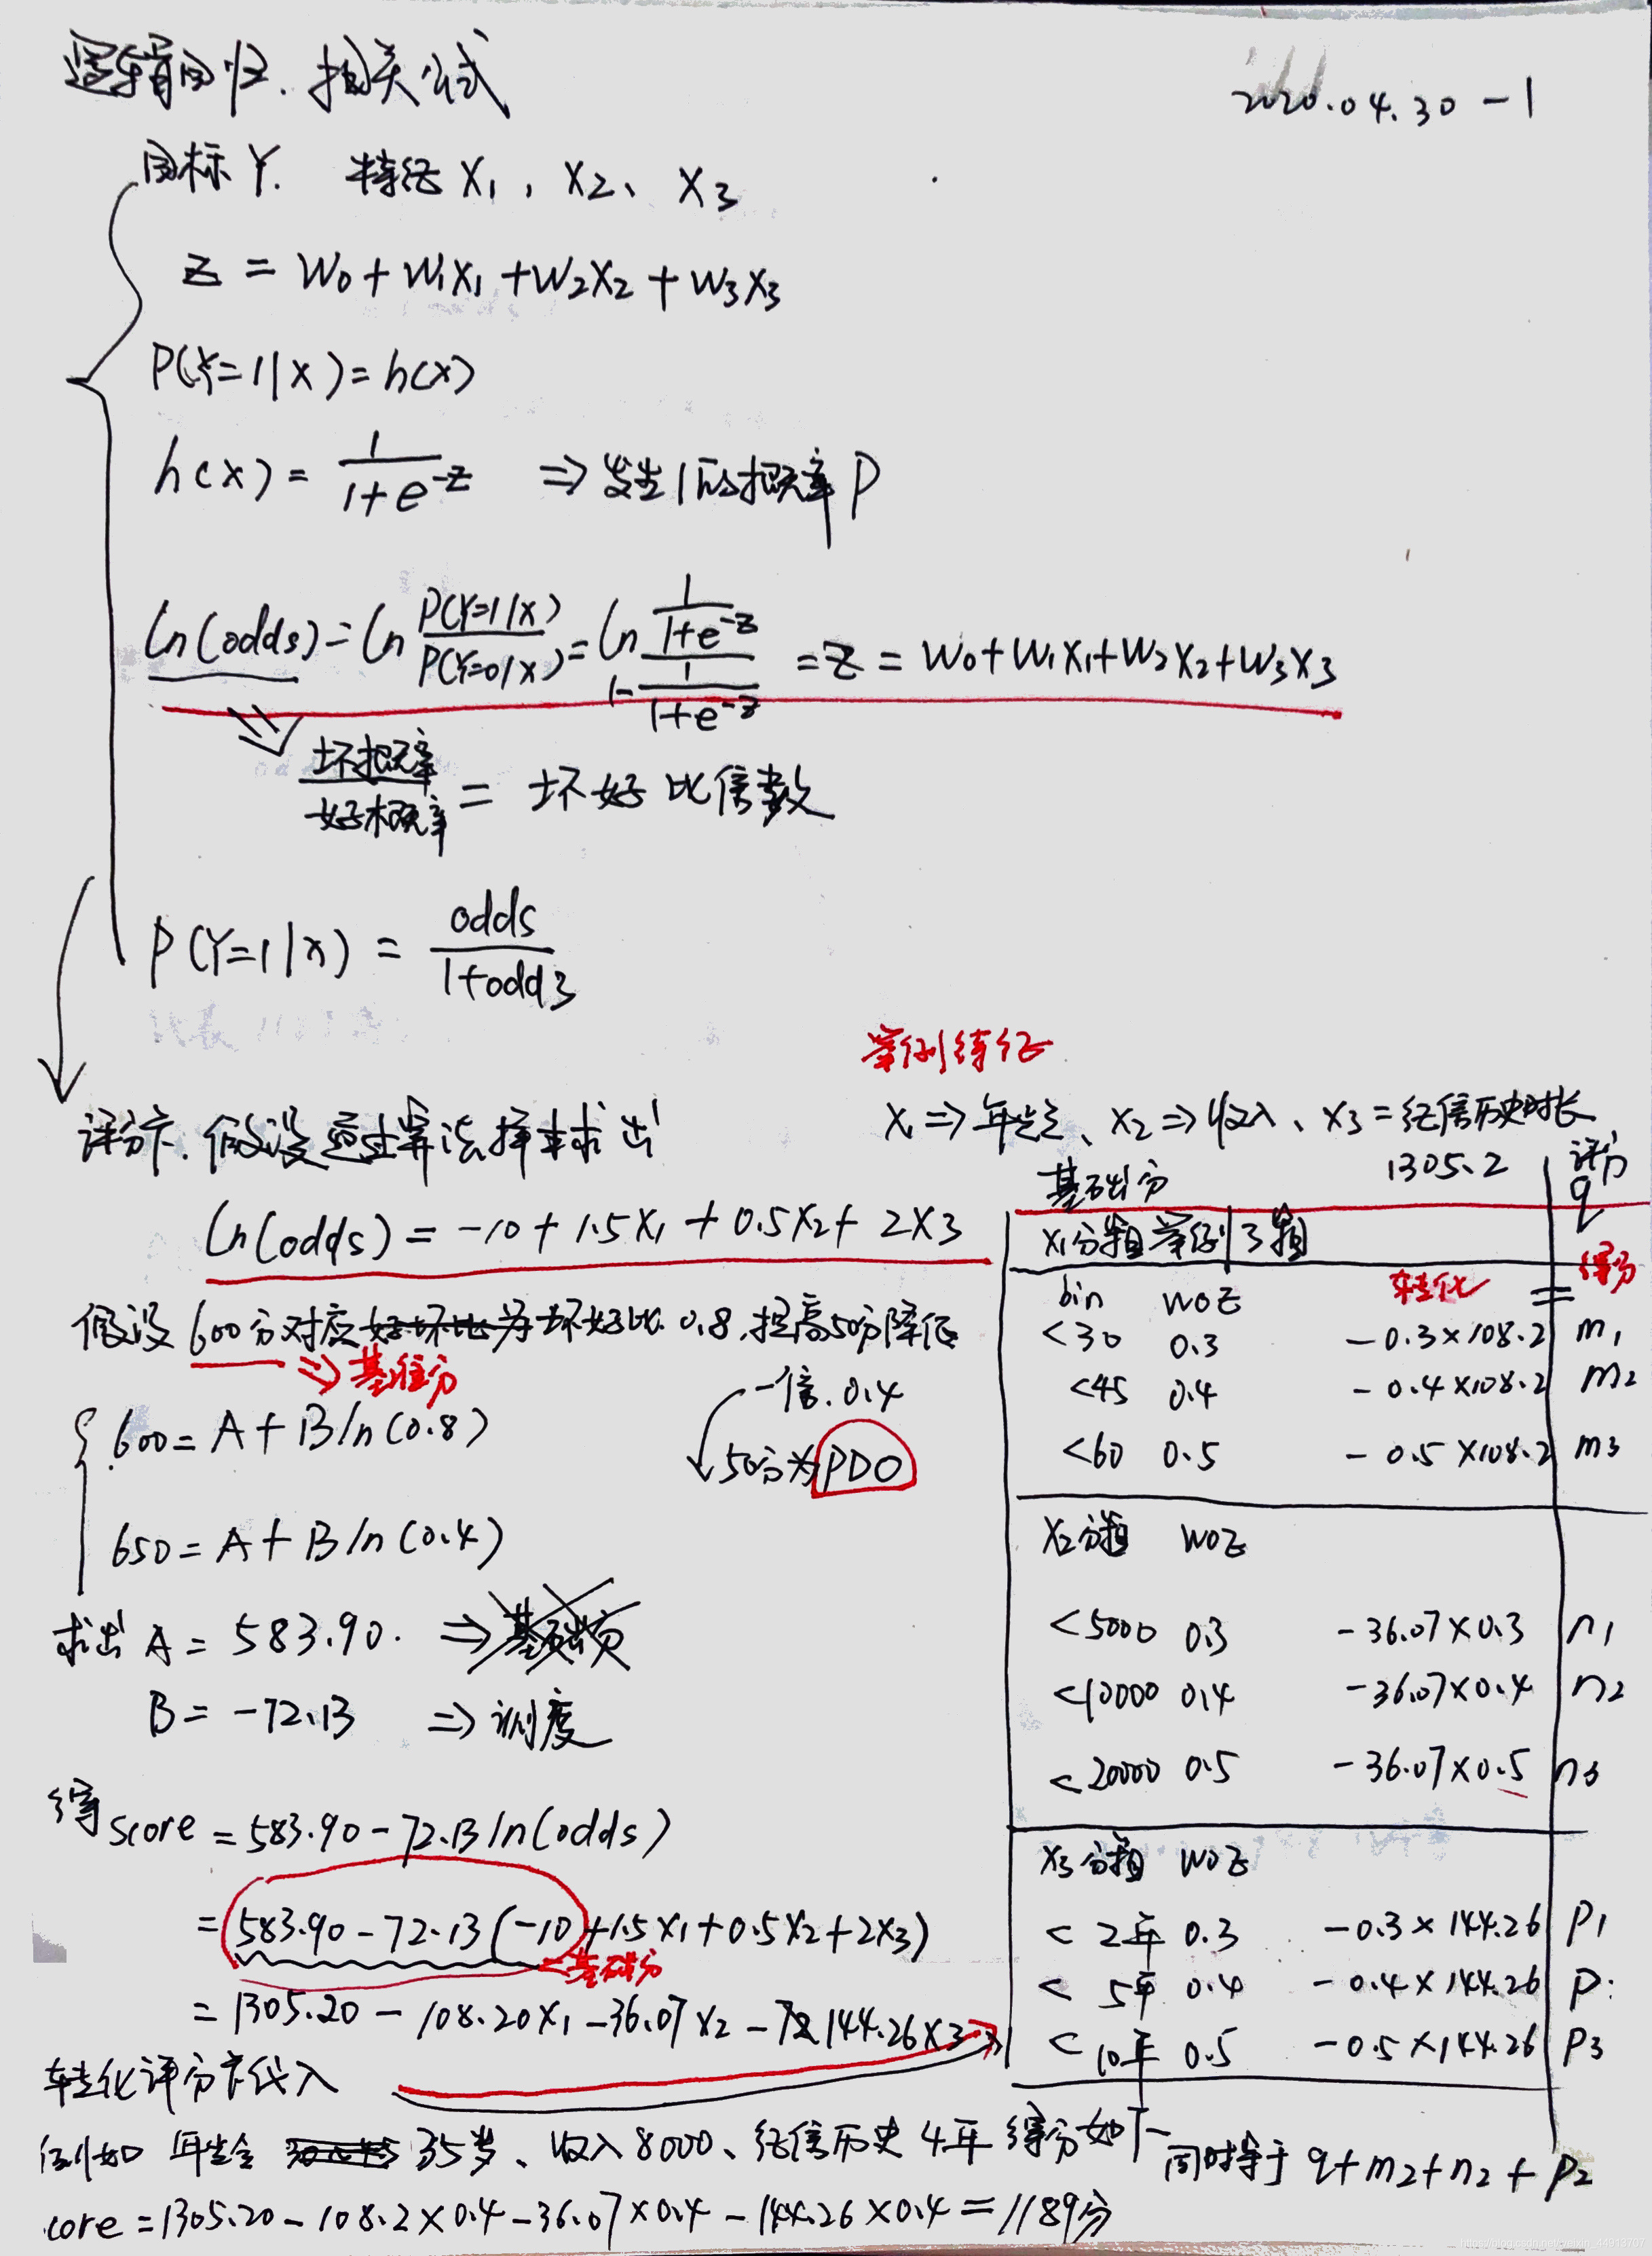 逻辑回归.相关公式
2020.04.30 -1
目标 Y. 特征 X₁, X₂、X₃
Z = W₀ + W₁X₁ + W₂X₂ + W₃X₃
P(Y=1|X) = h(X)
h(X) = 1/(1+e^-z) ⇒ 发生1的概率P
ln(odds) = ln P(Y=1|X)/P(Y=0|X) = ln (1/(1+e^-z))/(1-1/(1+e^-z)) = Z = W₀+W₁X₁+W₂X₂+W₃X₃
坏概率/好概率 = 坏好比倍数
P(Y=1|X) = odds/(1+odds)
评分卡.假设通过算法择求出
ln(odds) = -10 + 1.5X₁ + 0.5X₂ + 2X₃
假设 600分对应好坏比为坏好比 0.8.提高50分降低
一倍.0.4
⇒ 基准分
50分为PDO
600 = A + B ln(0.8)
650 = A + B ln(0.4)
求出 A = 583.90. ⇒ 基础分
B = -72.13 ⇒ 刻度
得 score = 583.90 - 72.13 ln(odds)
= 583.90 - 72.13(-10 + 1.5X₁ + 0.5X₂ + 2X₃)
基础分
= 1305.20 - 108.20X₁ - 36.07X₂ - 144.26X₃
转化评分卡代入
举例特征
X₁ ⇒ 年龄、X₂ ⇒ 收入、X₃ = 征信历史时长
基础分 1305.2 评分 q
X₁分组举例3组
bin WOE 转化 = 得分
<30 0.3 -0.3×108.2 m₁
<45 0.4 -0.4×108.2 m₂
<60 0.5 -0.5×108.2 m₃
X₂分组 WOE
<5000 0.3 -36.07×0.3 n₁
<10000 0.4 -36.07×0.4 n₂
<20000 0.5 -36.07×0.5 n₃
X₃分组 WOE
< 2年 0.3 -0.3×144.26 P₁
< 5年 0.4 -0.4×144.26 P:
< 10年 0.5 -0.5×144.26 P₃
例如 年龄 35岁、收入8000、征信历史4年 得分如下 同时等于 q+m₂+n₂+P₂
core = 1305.20 - 108.2×0.4 - 36.07×0.4 - 144.26×0.4 = 1189分